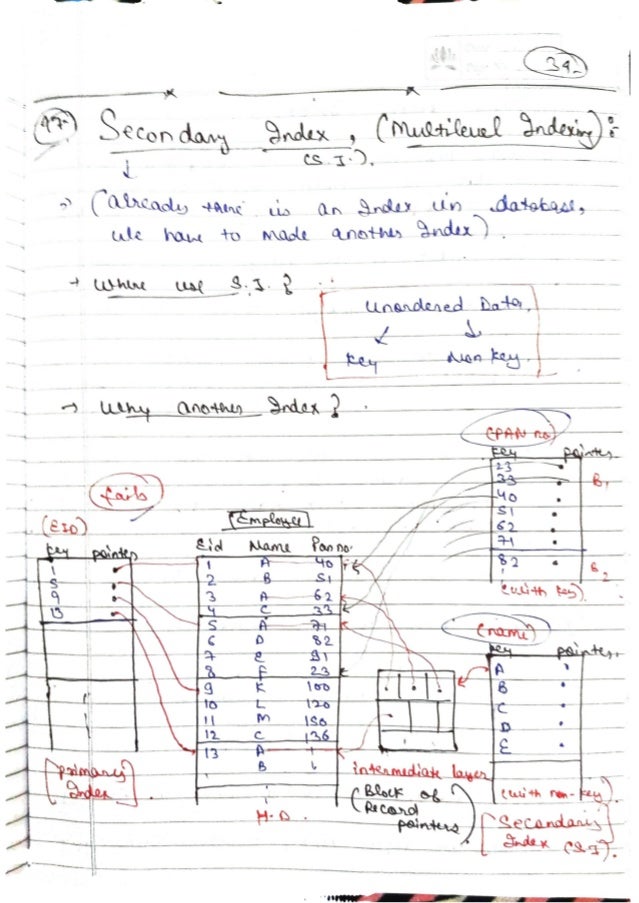 39.
47. Secondary Index, (Multilevel Indexing):
(S.I.).
→ (already there is an Index in database,
we have to made another Index).
→ Where use S.I.?
Unordered Data.
Key Non Key.
→ Why another Index?
(PAN no)
key pointer
23
33 B1
40
51
62
71
82 B2
(with key).
fails
(EID)
key pointer
1
5
9
13
[primary Index]
Employee
Eid Name Pan no.
1 A 40
2 B 51
3 A 62
4 C 33
5 A 71
6 D 82
7 E 91
8 F 23
9 K 100
10 L 120
11 M 150
12 C 136
13 A
B
H.D.
intermediate layer
(Block of
Record
pointers)
(name)
key pointer.
A
B
C
D
E
(with non-key).
[Secondary
Index (S.I)].